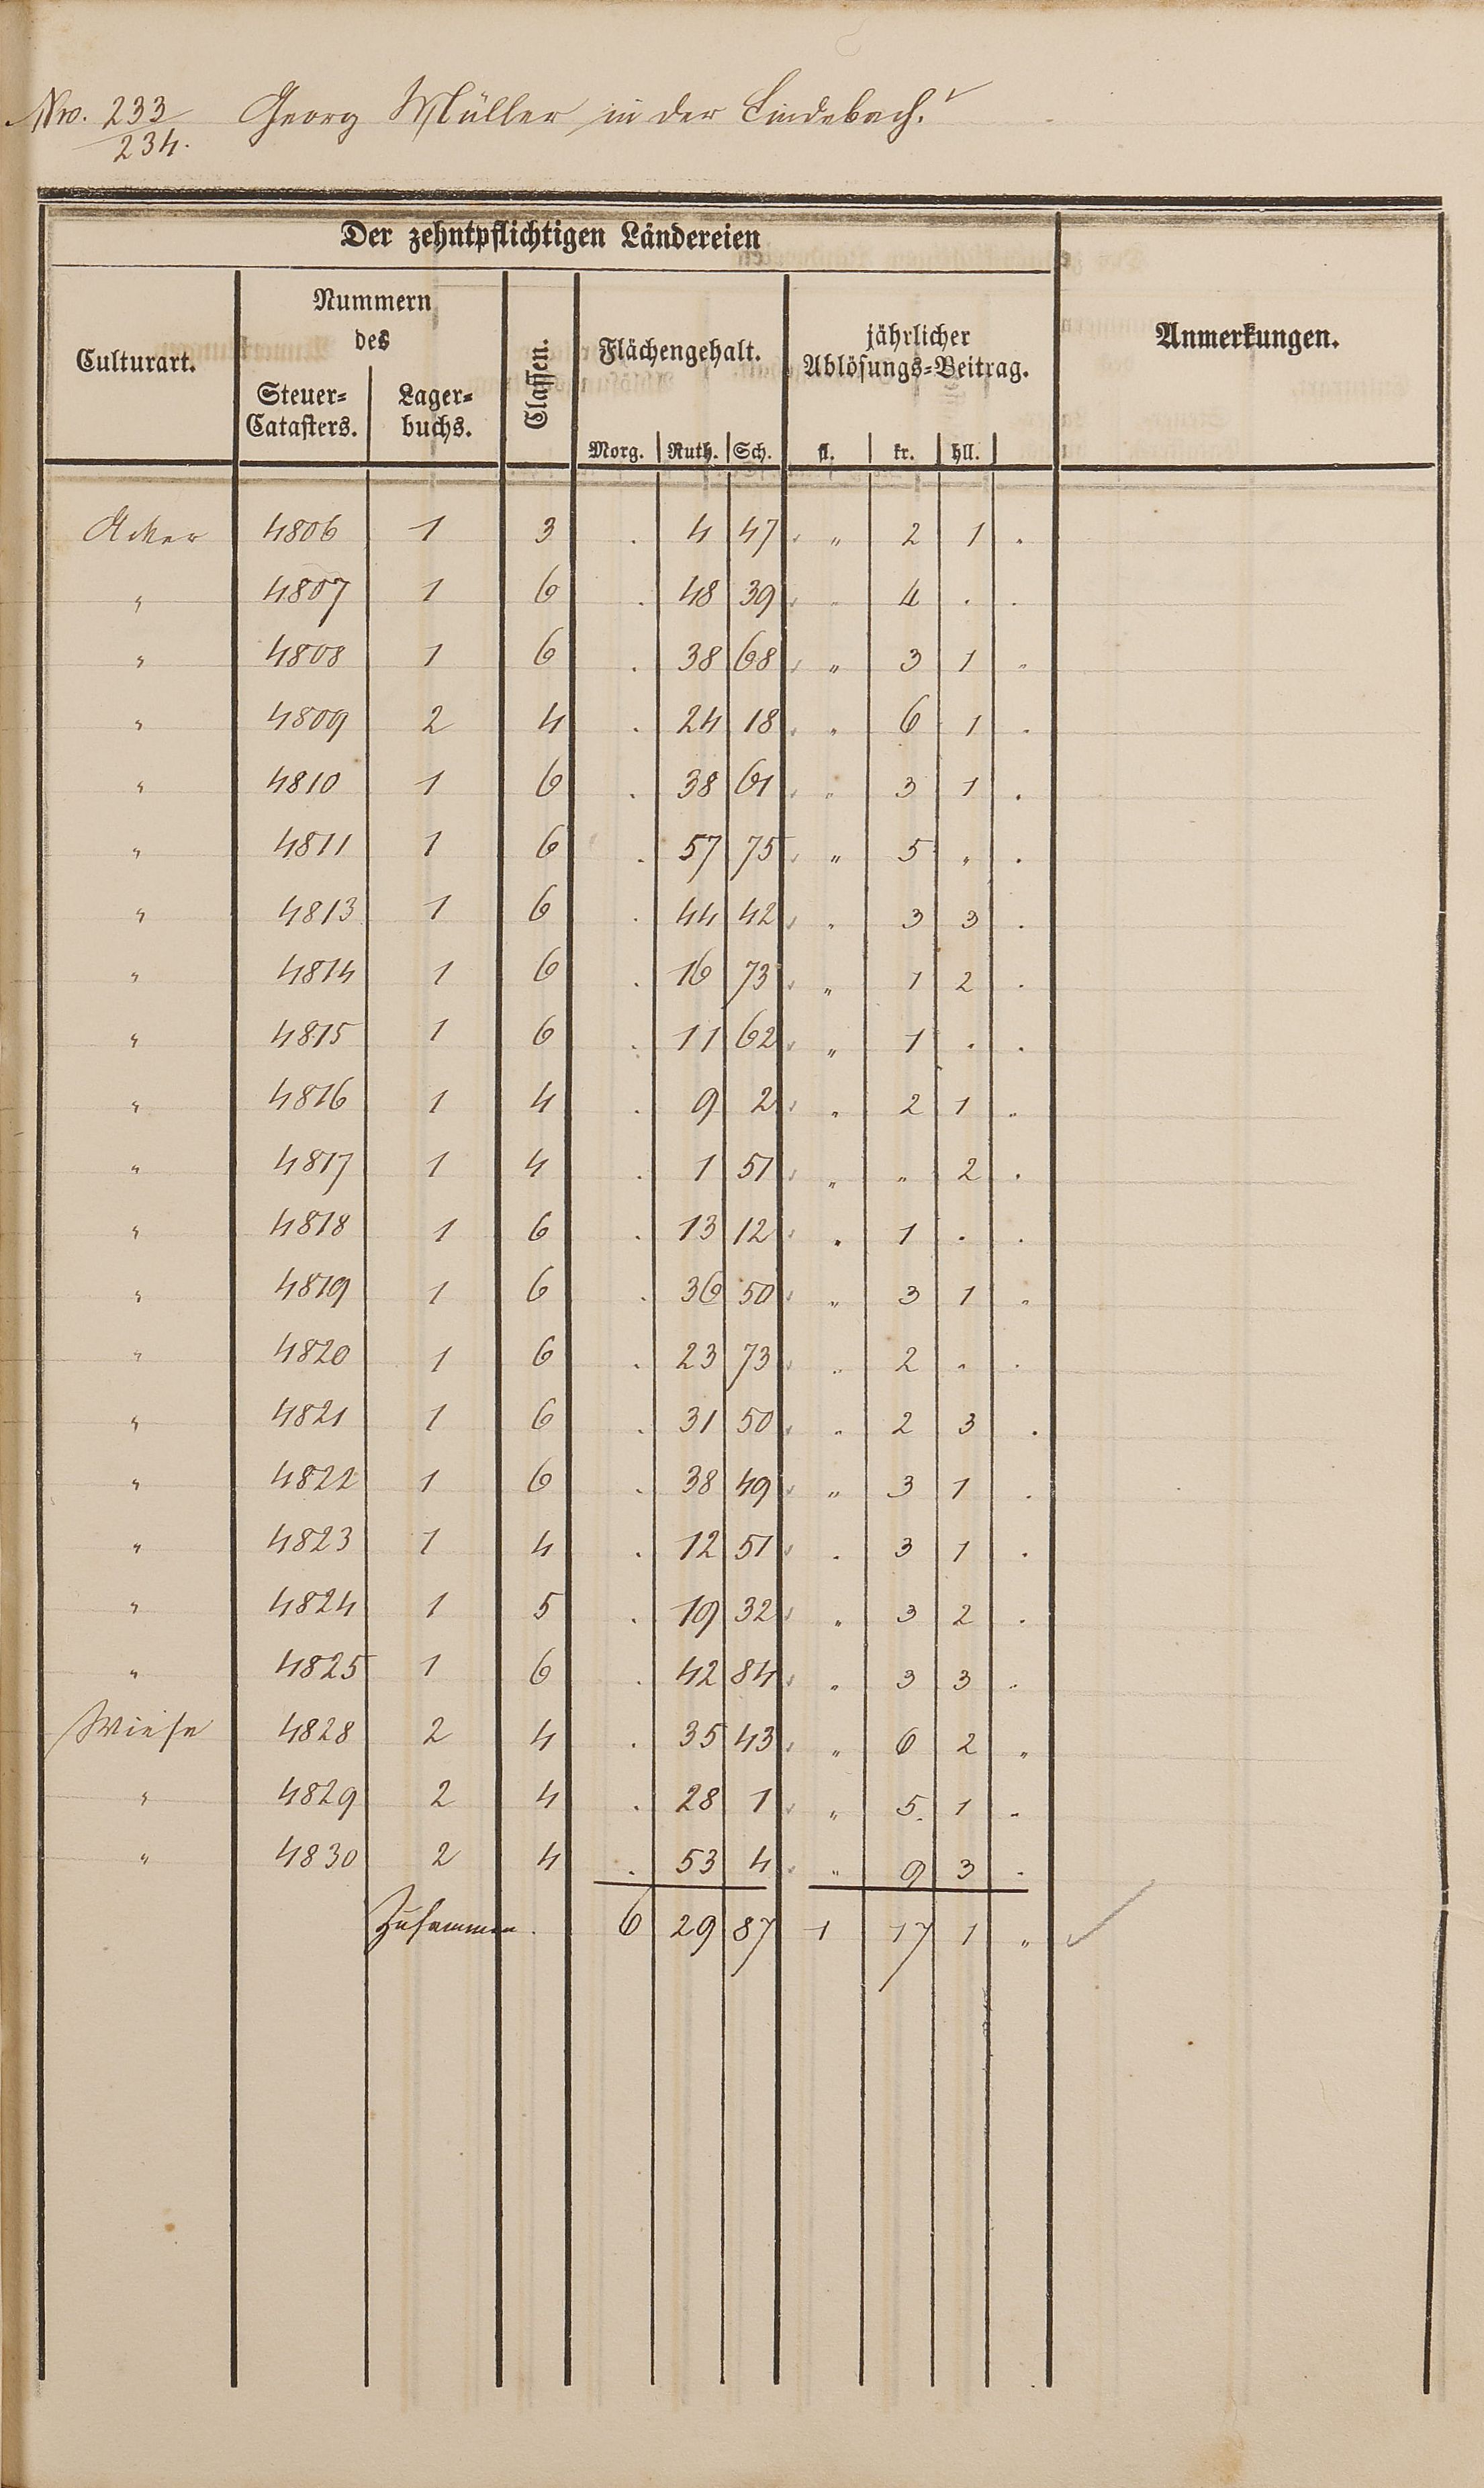 No. 233 Georg Müller in der Lindebach.
234.
Der zehntpflichtigen Ländereien
Culturart. Nummern des Steuer-Catasters. Lager-buchs. Classen. Flächengehalt. Morg. Ruth. Sch. jährlicher Ablösungs-Beitrag. fl. kr. hll. Anmerkungen.
Acker 4806 1 3 . 4 47 " 2 1 .
" 4807 1 6 . 48 39 " 4 . .
" 4808 1 6 . 38 68 " 3 1 .
" 4809 2 4 . 24 18 " 6 1 .
" 4810 1 6 . 38 61 " 3 1 .
" 4811 1 6 . 57 75 " 5 " .
" 4813 1 6 . 44 42 " 3 3 .
" 4814 1 6 . 16 73 " 1 2 .
" 4815 1 6 . 11 62 " 1 . .
" 4816 1 4 . 9 2 " 2 1 "
" 4817 1 4 . 1 51 " " 2 .
" 4818 1 6 . 13 12 " 1 . .
" 4819 1 6 . 36 50 " 3 1 "
" 4820 1 6 . 23 73 " 2 " .
" 4821 1 6 . 31 50 " 2 3 .
" 4822 1 6 . 38 49 " 3 1 .
" 4823 1 4 . 12 51 . 3 1 .
" 4824 1 5 . 19 32 " 3 2 .
" 4825 1 6 . 42 84 " 3 3 "
Wiese 4828 2 4 . 35 43 " 6 2 "
" 4829 2 4 . 28 1 " 5 1 "
" 4830 2 4 . 53 4 " 9 3 "
Zusammen. 6 29 87 1 17 1 "